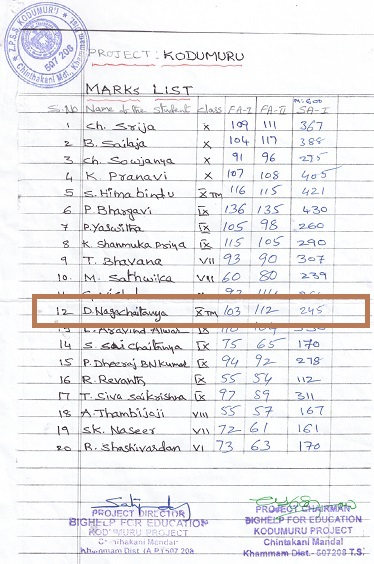 I.P.E.S. KODUMURU
Chinthakani Mdl., Khammam
507 208
PROJECT : KODUMURU
MARKS LIST
M:600
Sl.No Name of the student class FA-I FA-II SA-I
1 Ch. Srija X 109 111 367
2 B. Sailaja X 104 117 388
3 Ch. Sowjanya X 91 96 275
4 K. Pranavi X 107 108 405
5 S. Himabindu X TM 116 115 421
6 P. Bhargavi IX 136 135 430
7 P. Yaswitha IX 105 98 260
8 K. Shanmuka Priya IX 115 105 290
9 T. Bhavana VII 93 90 307
10. M. Sathwika VII 60 80 239
12 D. Nagachaitanya X TM 103 112 245
Aravind
14 S. Sai Chaitanya IX 75 65 170
15 P. Dheeraj B.N Kumar IX 94 92 278
16 R. Revanth IX 55 54 112
17 T. Siva Saikrishna IX 97 59 311
18 A. Thambiiaji VIII 55 57 167
19 SK. Naseer VII 72 61 161
20 R. Shashivardan VI 73 63 170
PROJECT DIRECTOR
BIGHELP FOR EDUCATION
KODUMURU PROJECT
Chinthakani Mandal
Khammam Dist. (A.P) 507 208
PROJECT CHAIRMAN
BIGHELP FOR EDUCATION
KODUMURU PROJECT
Chintakani Mandal
Khammam Dist.- 507208 T.S.